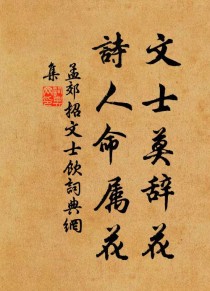 文士莫辞花
詩人命属花
孟郊招文士飲詞典網
集